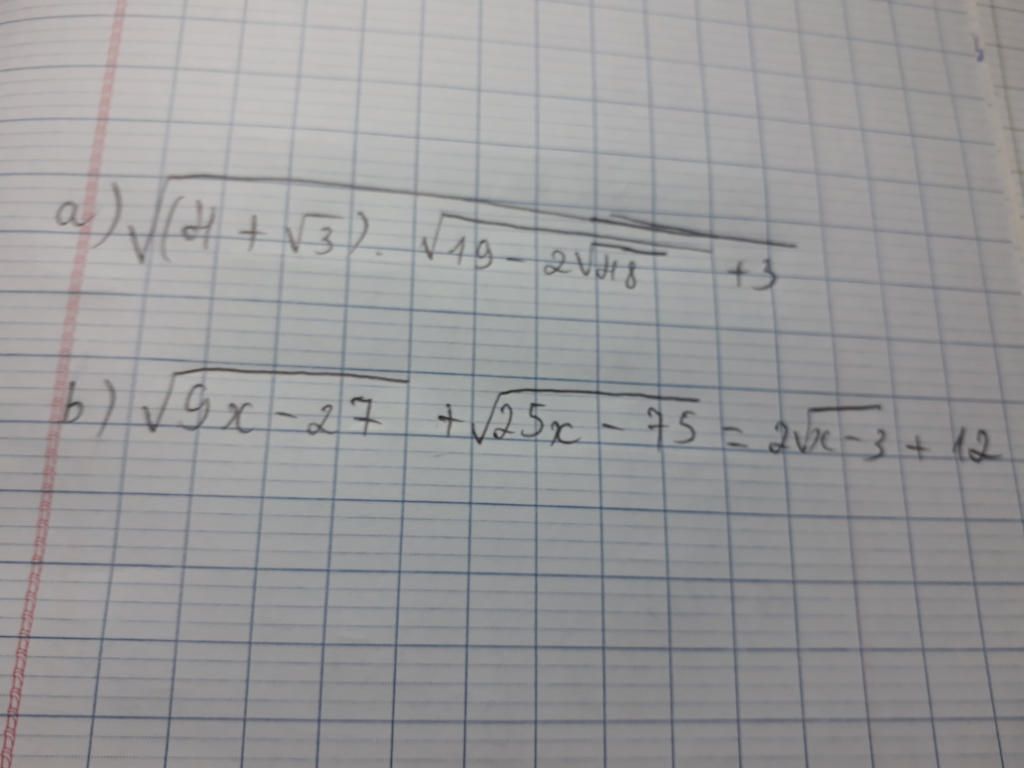 a) √((4 + √3) . √(19 - 2√48) + 3)
b) √(9x - 27) + √(25x - 75) = 2√(x - 3) + 12